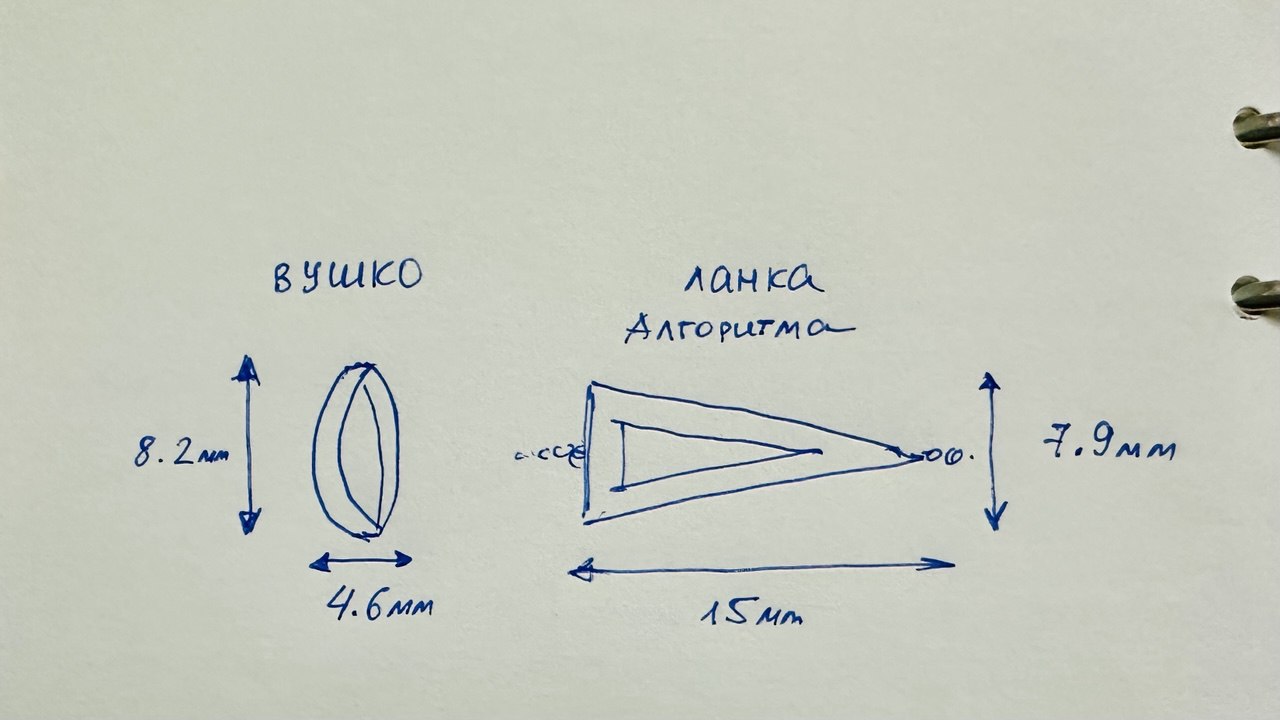 ВУШКО
ЛАНКА
АЛГОРИТМА
8.2мм
7.9мм
4.6мм
15мм